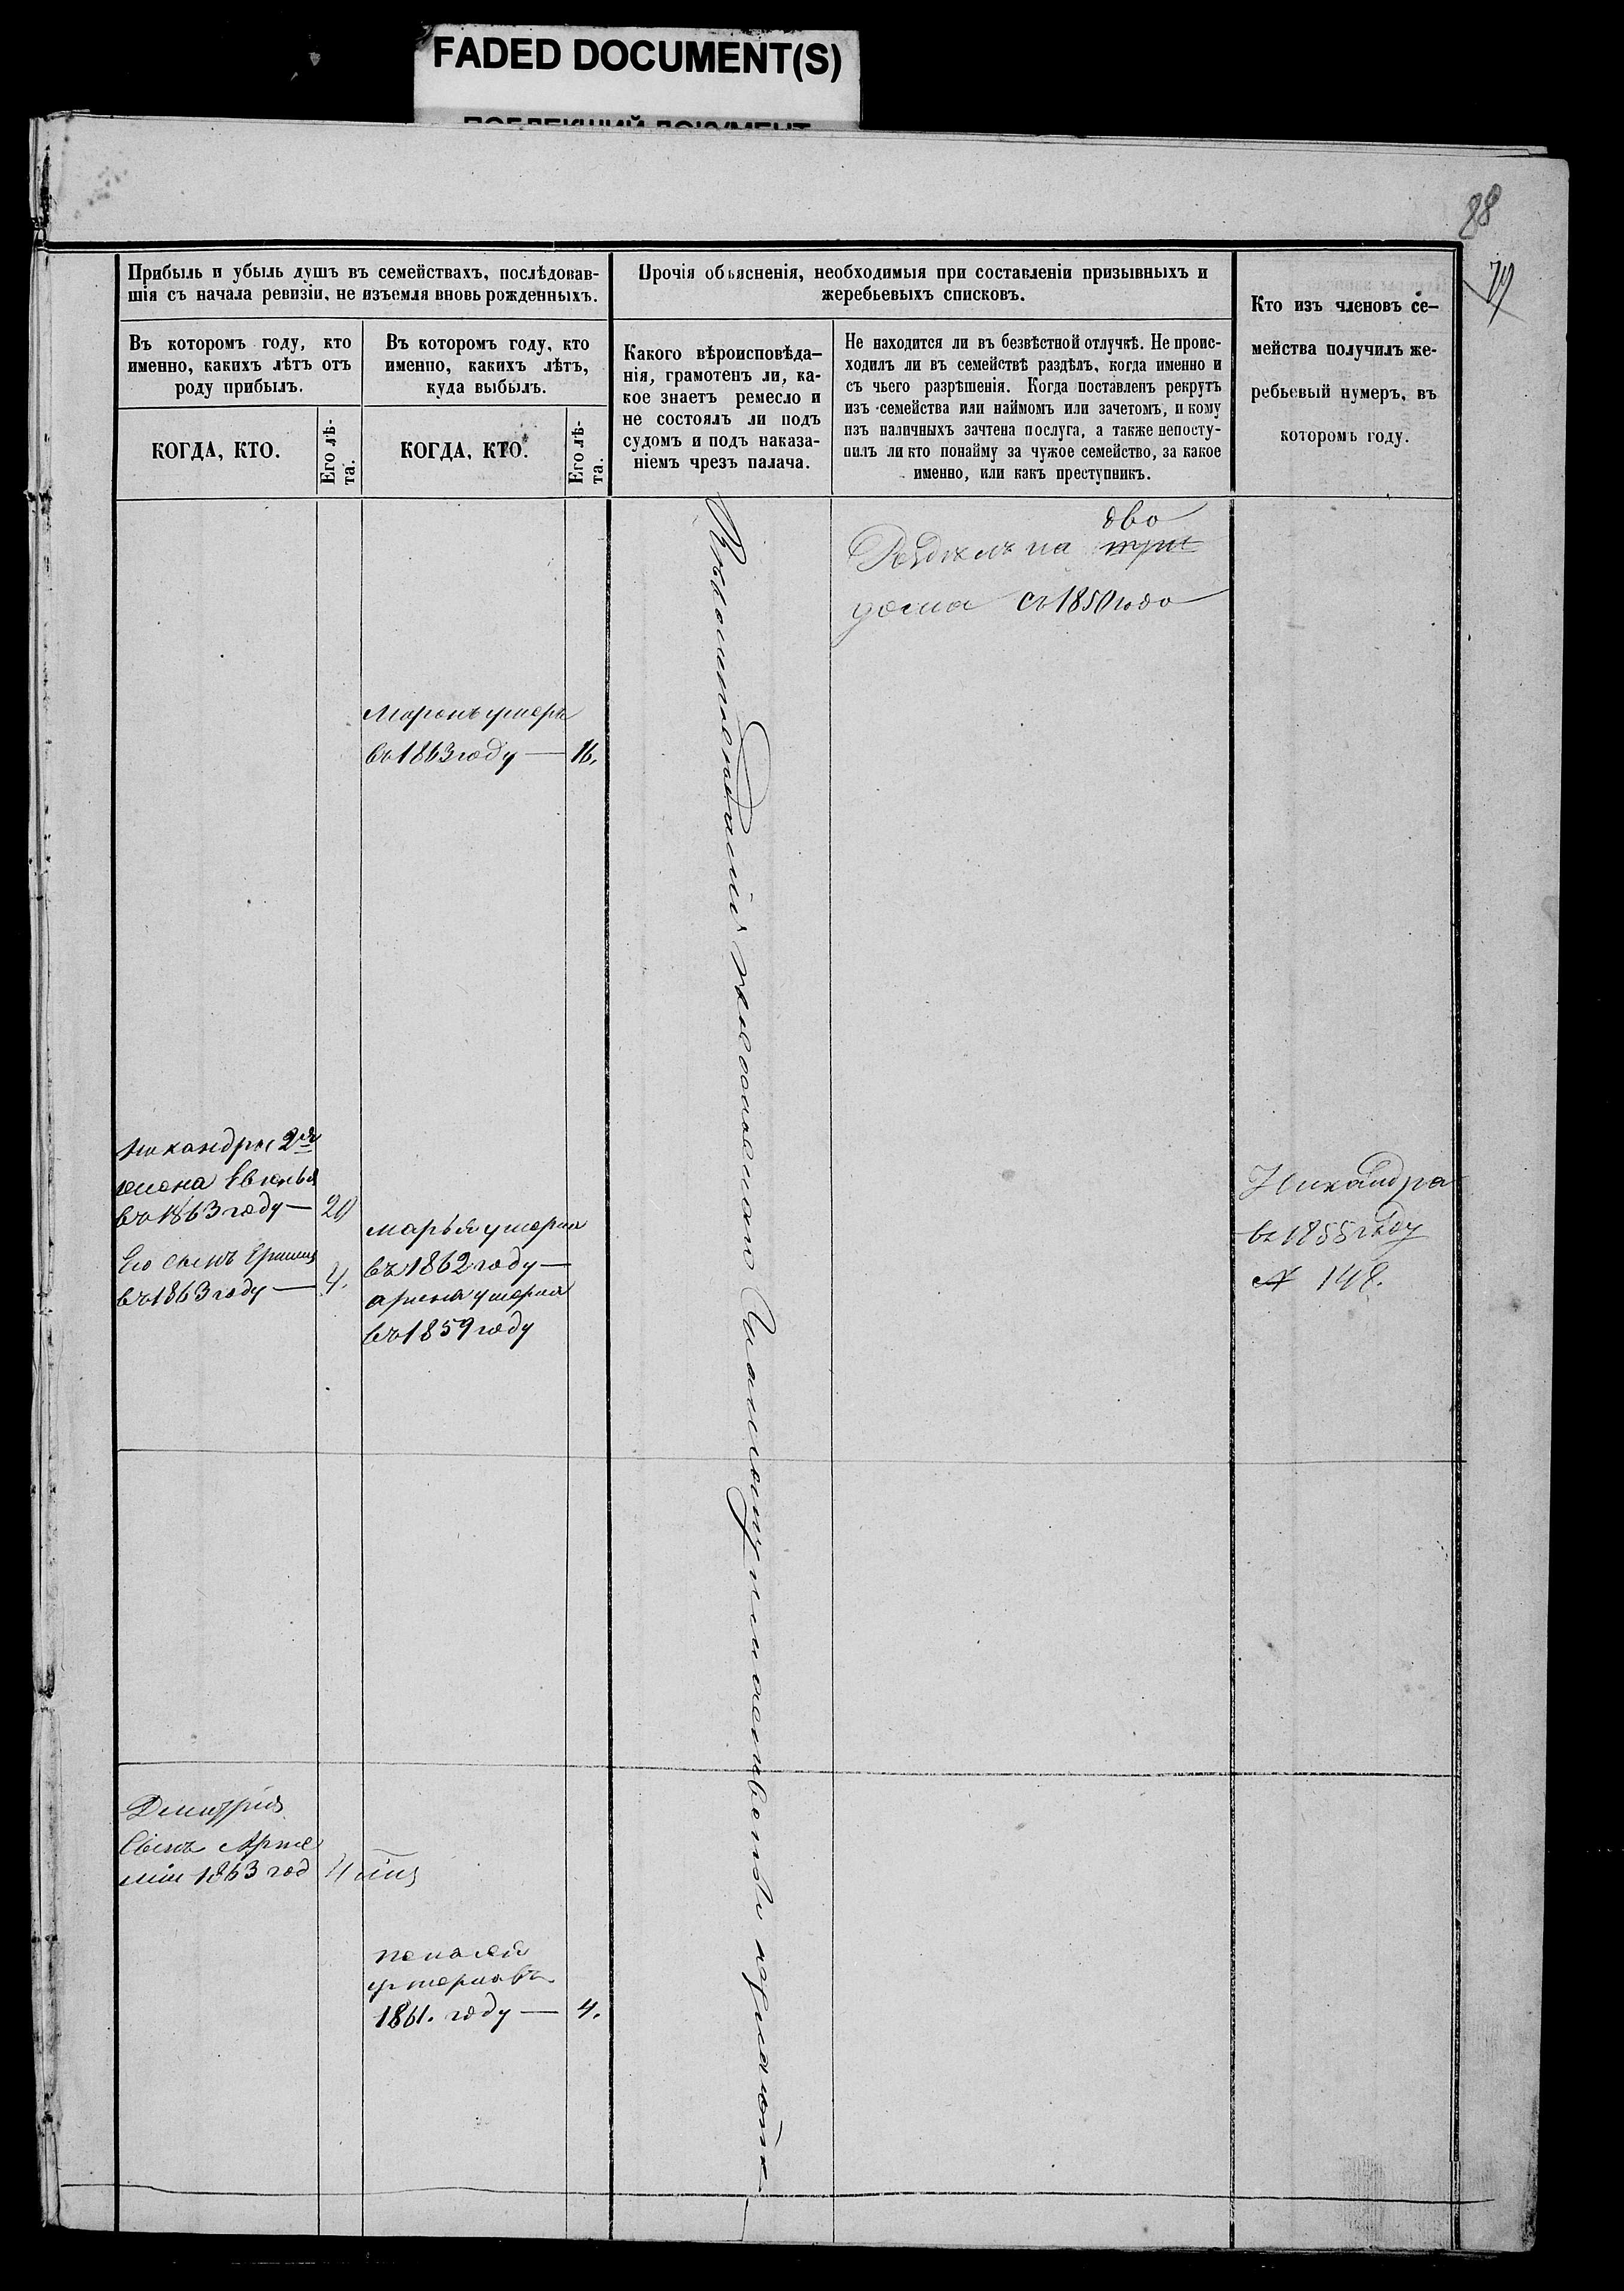 FADED DOCUMENT(S)
ПОБЛЕКШИЙ ДОКУМЕНТ
88
79
Прибыль и убыль душъ въ семействахъ, послѣдовав-
шія съ начала ревизіи, не изъемля вновь рожденныхъ.
Въ которомъ году, кто
именно, какихъ лѣтъ отъ
роду прибылъ.
КОГДА, КТО.
Его лѣ-
та.
Въ которомъ году, кто
именно, какихъ лѣтъ,
куда выбылъ.
КОГДА, КТО.
Его лѣ-
та.
Прочія объясненія, необходимыя при составленіи призывныхъ и
жеребьевыхъ списковъ.
Какого вѣроисповѣда-
нія, грамотенъ ли, ка-
кое знаетъ ремесло и
не состоялъ ли подъ
судомъ и подъ наказа-
ніемъ чрезъ палача.
Не находится ли въ безвѣстной отлучкѣ. Не проис-
ходилъ ли въ семействѣ раздѣлъ, когда именно и
съ чьего разрѣшенія. Когда поставленъ рекрутъ
изъ семейства или наймомъ или зачетомъ, и кому
изъ наличныхъ зачтена послуга, а также непосту-
пилъ ли кто понайму за чужое семейство, за какое
именно, или какъ преступникъ.
Кто изъ членовъ се-
мейства получилъ же-
ребьевый нумеръ, въ
которомъ году.
два
Раздѣлъ на три
дома съ 1850 года
умеръ
въ 1863 году — 16.
Никандры 2я
жена
въ 1863 году — 20
Его сынъ
въ 1863 году — 4.
Марья умерла
въ 1862 году —
Арина умерла
въ 1859 году
Никандра
въ 1855 году
№ 148.
Дмитрія
Сынъ Арте
мій 1863 год 4
Пелагея
умерла въ
1861. году — 4.
Вѣроисповѣданія православнаго